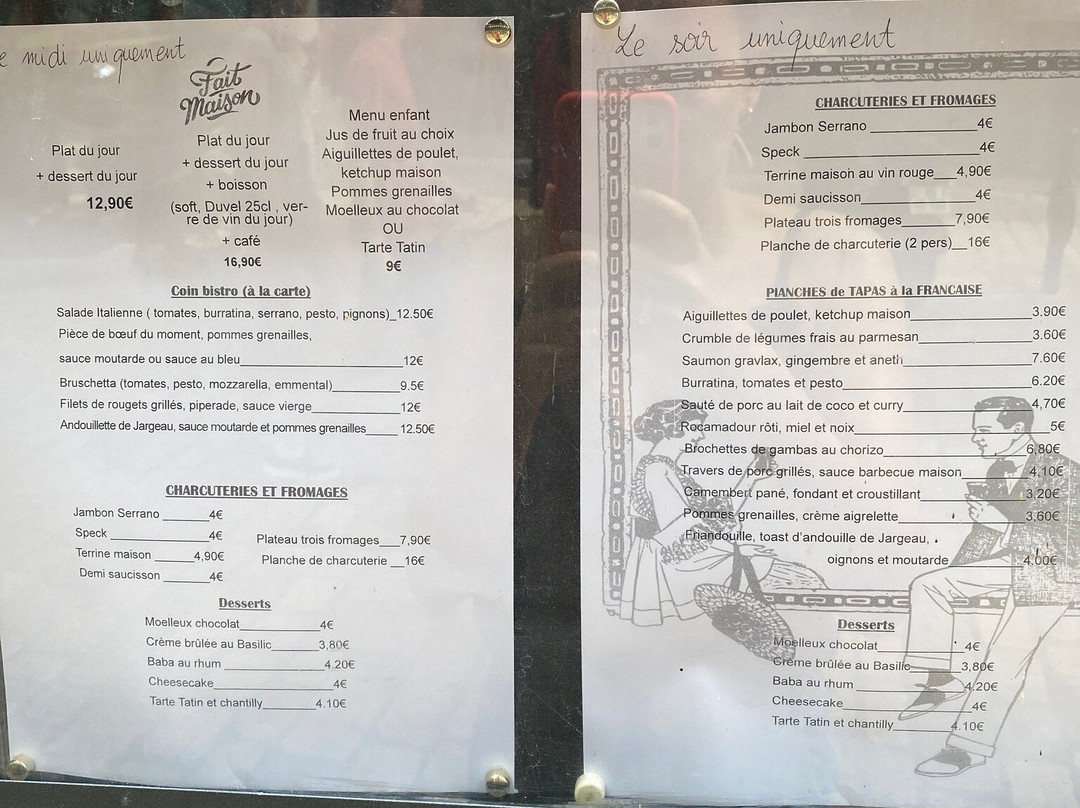 e midi uniquement
Fait
Maison
Plat du jour
+ dessert du jour
12,90€
Plat du jour
+ dessert du jour
+ boisson
(soft, Duvel 25cl , ver-
re de vin du jour)
+ café
16,90€
Menu enfant
Jus de fruit au choix
Aiguillettes de poulet,
ketchup maison
Pommes grenailles
Moelleux au chocolat
OU
Tarte Tatin
9€
Coin bistro (à la carte)
Salade Italienne ( tomates, burratina, serrano, pesto, pignons)_12.50€
Pièce de bœuf du moment, pommes grenailles,
sauce moutarde ou sauce au bleu 12€
Bruschetta (tomates, pesto, mozzarella, emmental) 9.5€
Filets de rougets grillés, piperade, sauce vierge 12€
Andouillette de Jargeau, sauce moutarde et pommes grenailles 12.50€
CHARCUTERIES ET FROMAGES
Jambon Serrano 4€
Speck 4€
Terrine maison 4,90€
Demi saucisson 4€
Plateau trois fromages 7,90€
Planche de charcuterie 16€
Desserts
Moelleux chocolat 4€
Crème brûlée au Basilic 3,80€
Baba au rhum 4.20€
Cheesecake 4€
Tarte Tatin et chantilly 4.10€
Le soir uniquement
CHARCUTERIES ET FROMAGES
Jambon Serrano 4€
Speck 4€
Terrine maison au vin rouge 4,90€
Demi saucisson 4€
Plateau trois fromages 7,90€
Planche de charcuterie (2 pers) 16€
PlANCHES de TAPAS à la FRANCAISE
Aiguillettes de poulet, ketchup maison 3.90€
Crumble de légumes frais au parmesan 3.60€
Saumon gravlax, gingembre et aneth 7.60€
Burratina, tomates et pesto 6.20€
Sauté de porc au lait de coco et curry 4,70€
Rocamadour rôti, miel et noix 5€
Brochettes de gambas au chorizo 6,80€
Travers de porc grillés, sauce barbecue maison 4,10€
Camembert pané, fondant et croustillant 3,20€
Pommes grenailles, crème aigrelette 3,60€
Friandouille, toast d'andouille de Jargeau,
oignons et moutarde 4.00€
Desserts
Moelleux chocolat 4€
Crème brûlée au Basilic 3,80€
Baba au rhum 4.20€
Cheesecake 4€
Tarte Tatin et chantilly 4.10€